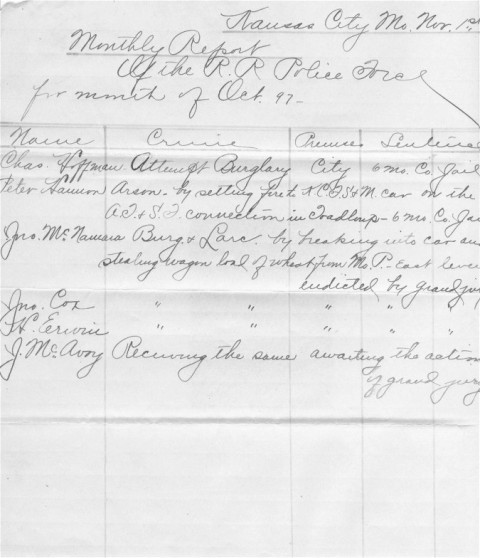 Kansas City Mo. Nov. 1st
Monthly Report
Of the R. R Police Force
for month of Oct. 97-
Name Crime Premises Sentence
Chas. Hoffman Attempt Burglary City 6 mo. Co. Jail
Peter Hannon Arson - by setting fire to K.C.F.S & M. car on the
A.T. & S.F. connection in - 6 mo. Co. Jail
Jno. McNamara Burg. & Larc. by breaking into car and
stealing wagon load of wheat from Mo. P. - East
indicted by grand jury
Jno. Cox " " " " "
H. Erwin " " " " "
J. McAvoy Recieving the same awaiting the action
of grand jury